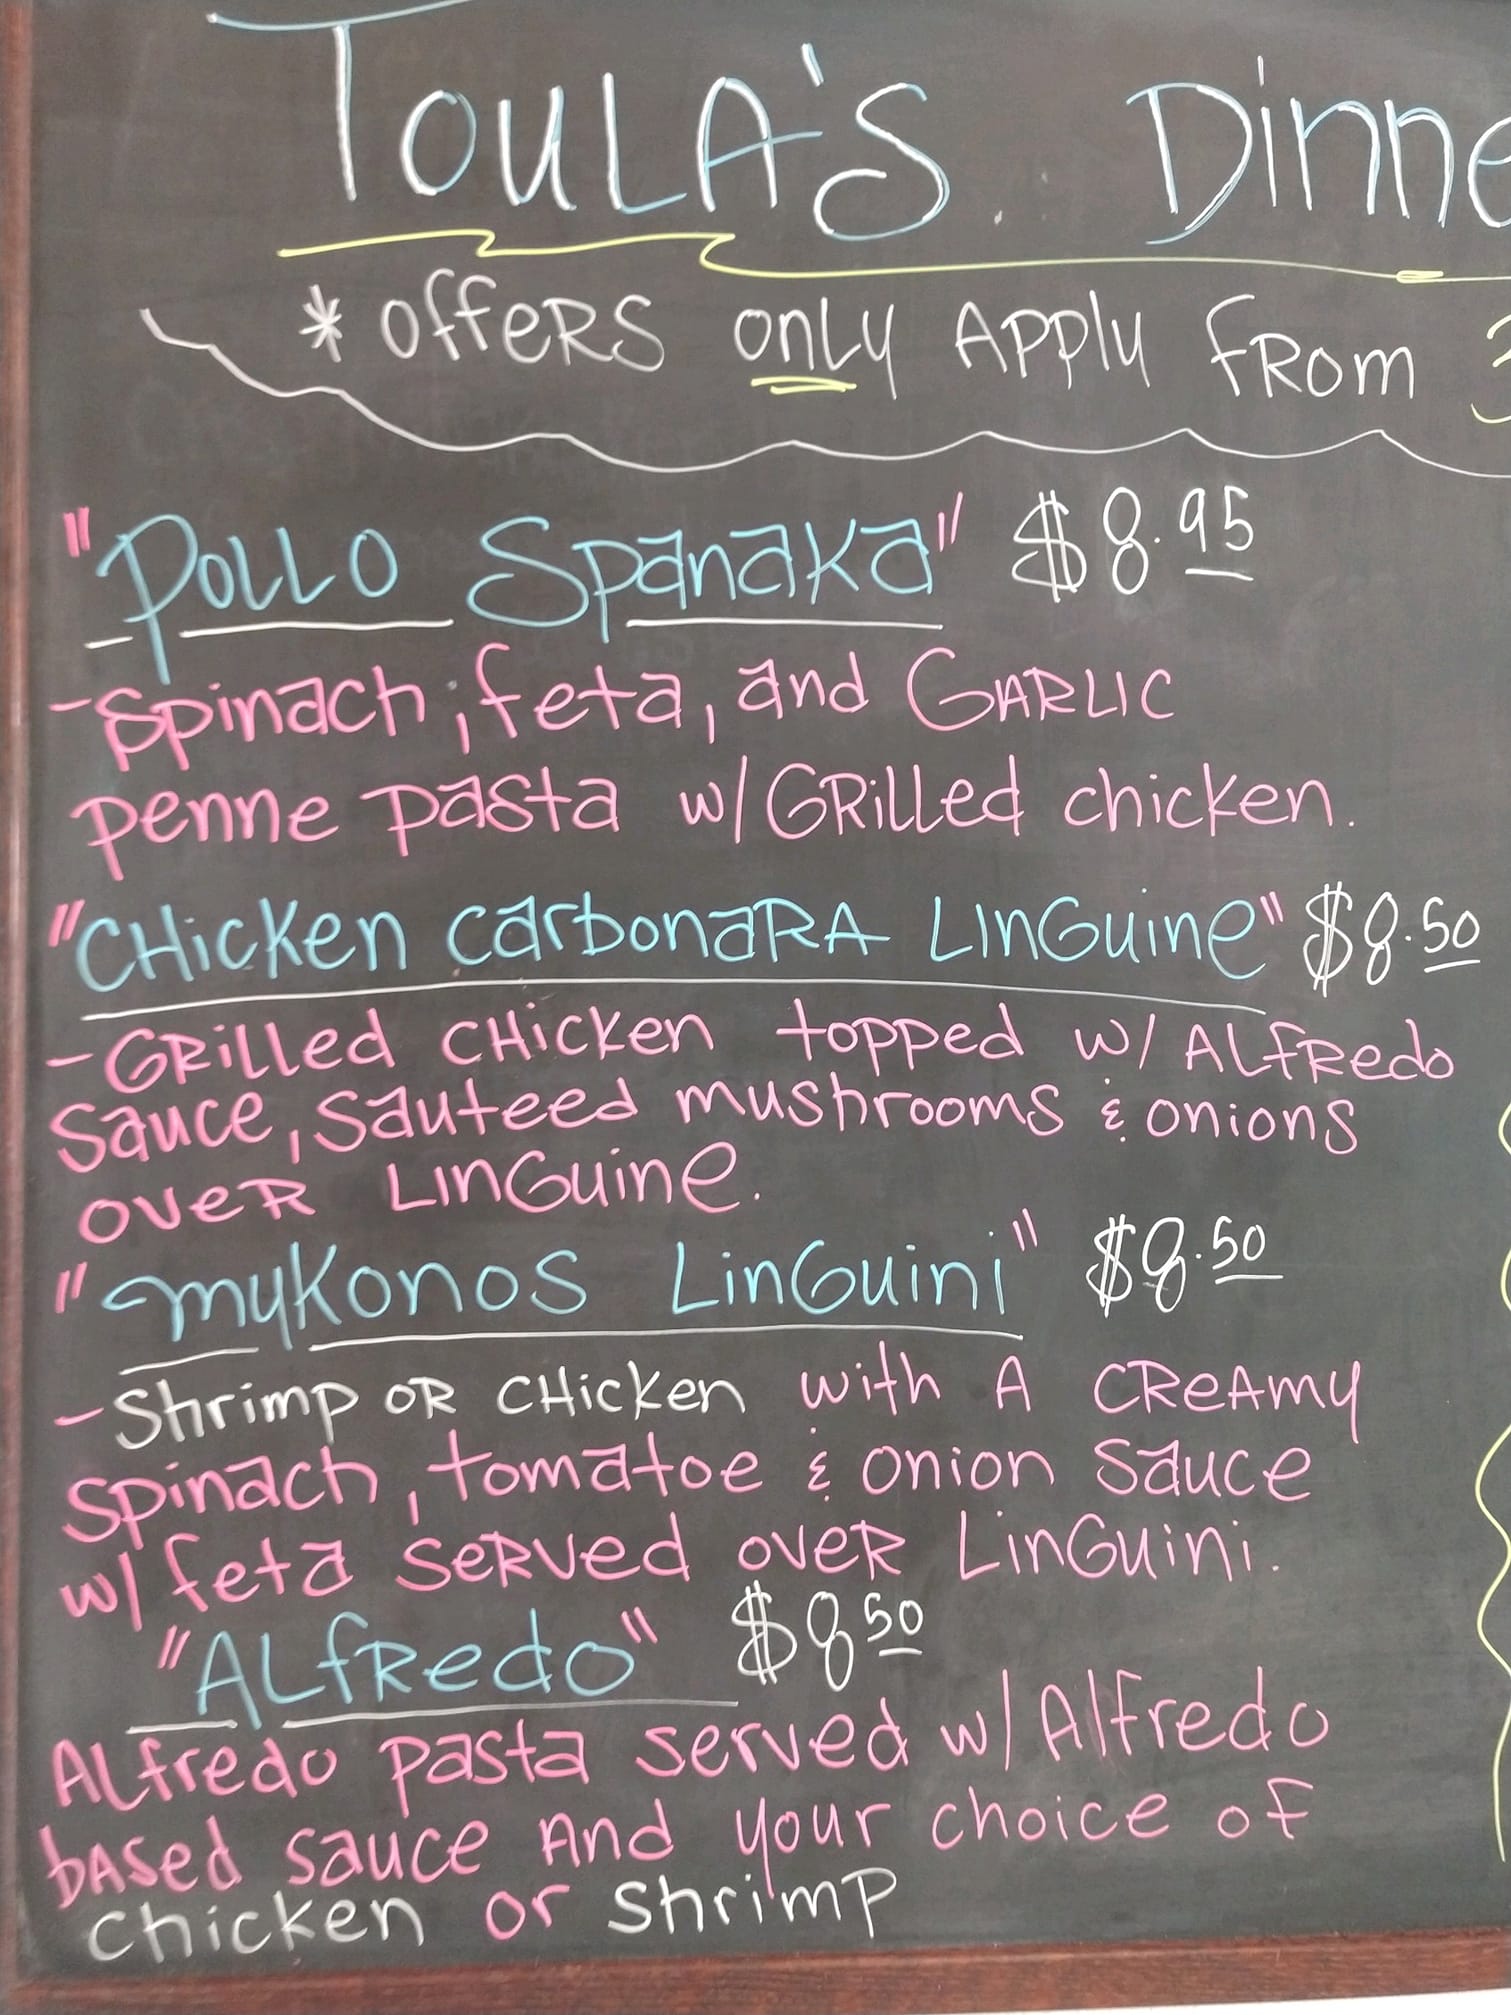 TOULA'S Dinne
* offers only Apply from
"Pollo Spanaka" $8.95
- Spinach, feta, and Garlic
penne pasta w/ Grilled chicken.
"CHicken Carbonara Linguine" $8.50
- Grilled CHicken topped w/ Alfredo
Sauce, Sauteed mushrooms & onions
over Linguine.
"Mykonos Linguini" $8.50
- Shrimp or CHicken with A Creamy
Spinach, tomatoe & onion Sauce
w/ feta Served over Linguini.
"Alfredo" $8 50
Alfredo pasta served w/ Alfredo
based sauce And your choice of
Chicken or Shrimp